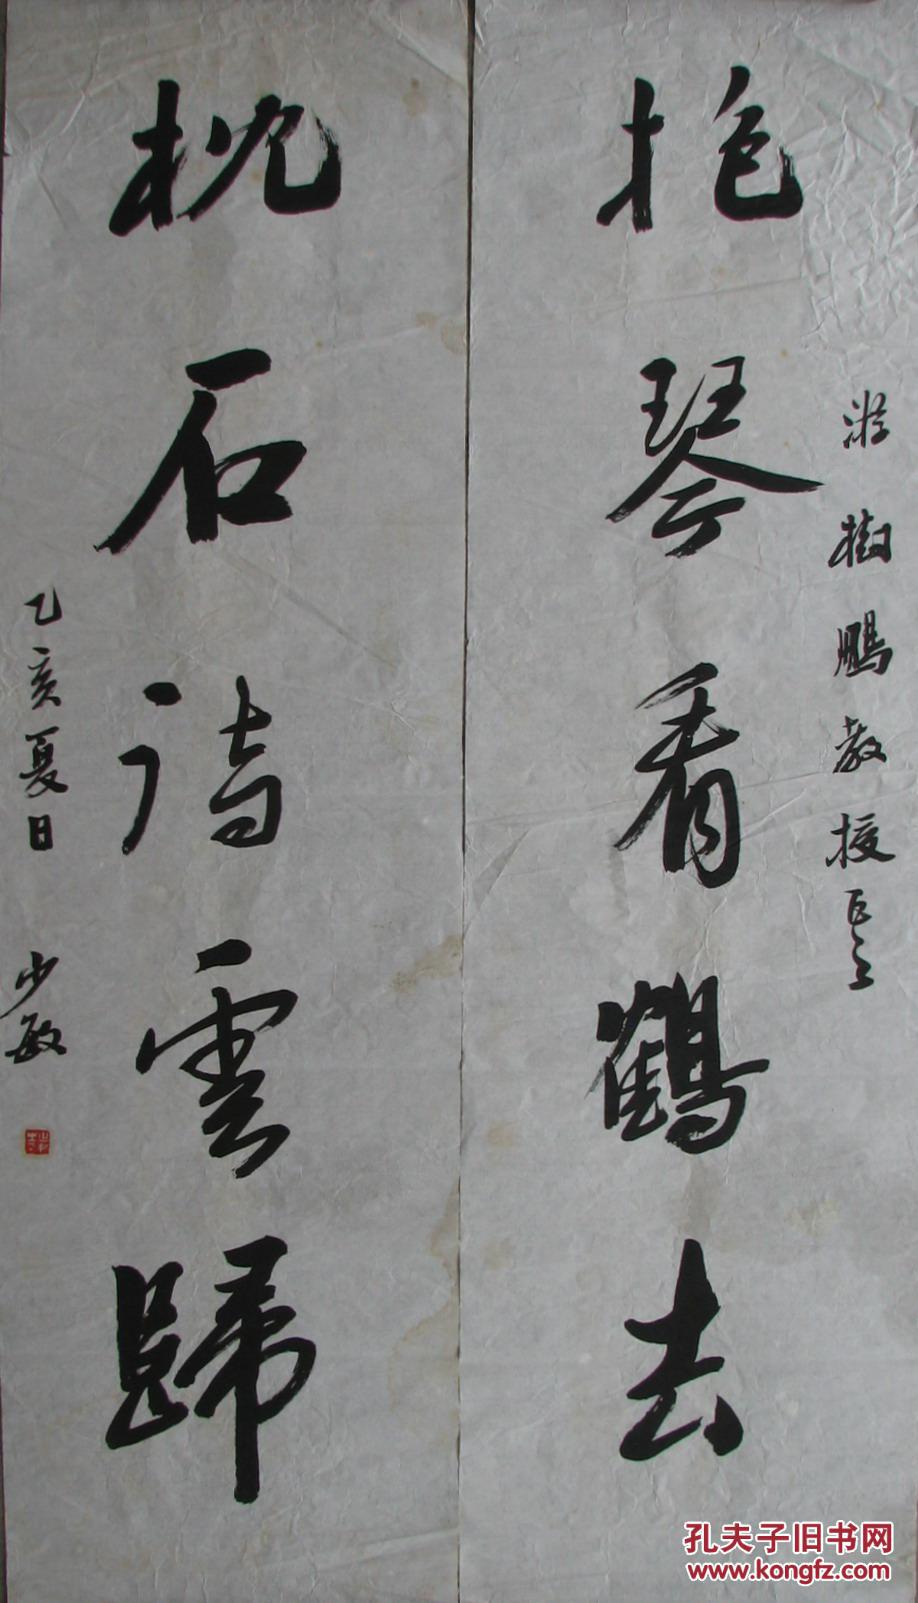 抱琴看鶴去
游樹鵬教授
枕石待雲歸
乙亥夏日 少敏
孔夫子旧书网
www.kongfz.com